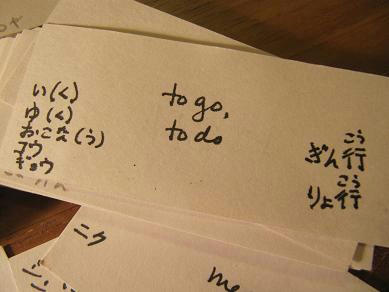 い(く)
ゆ(く)
おこな(う)
コウ
ギョウ
to go,
to do
こう
ぎん行
こう
りょ行
ニク
me